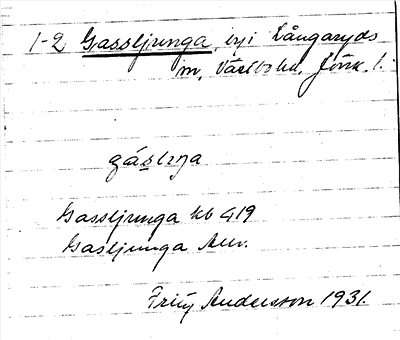 1-2 Gassljunga, by i Långaryds
sn, Västbo hd. Jönk. l.
gásliŋa
Gassljunga kb 419
Gasljunga Auv.
Fritz Andersson 1931.